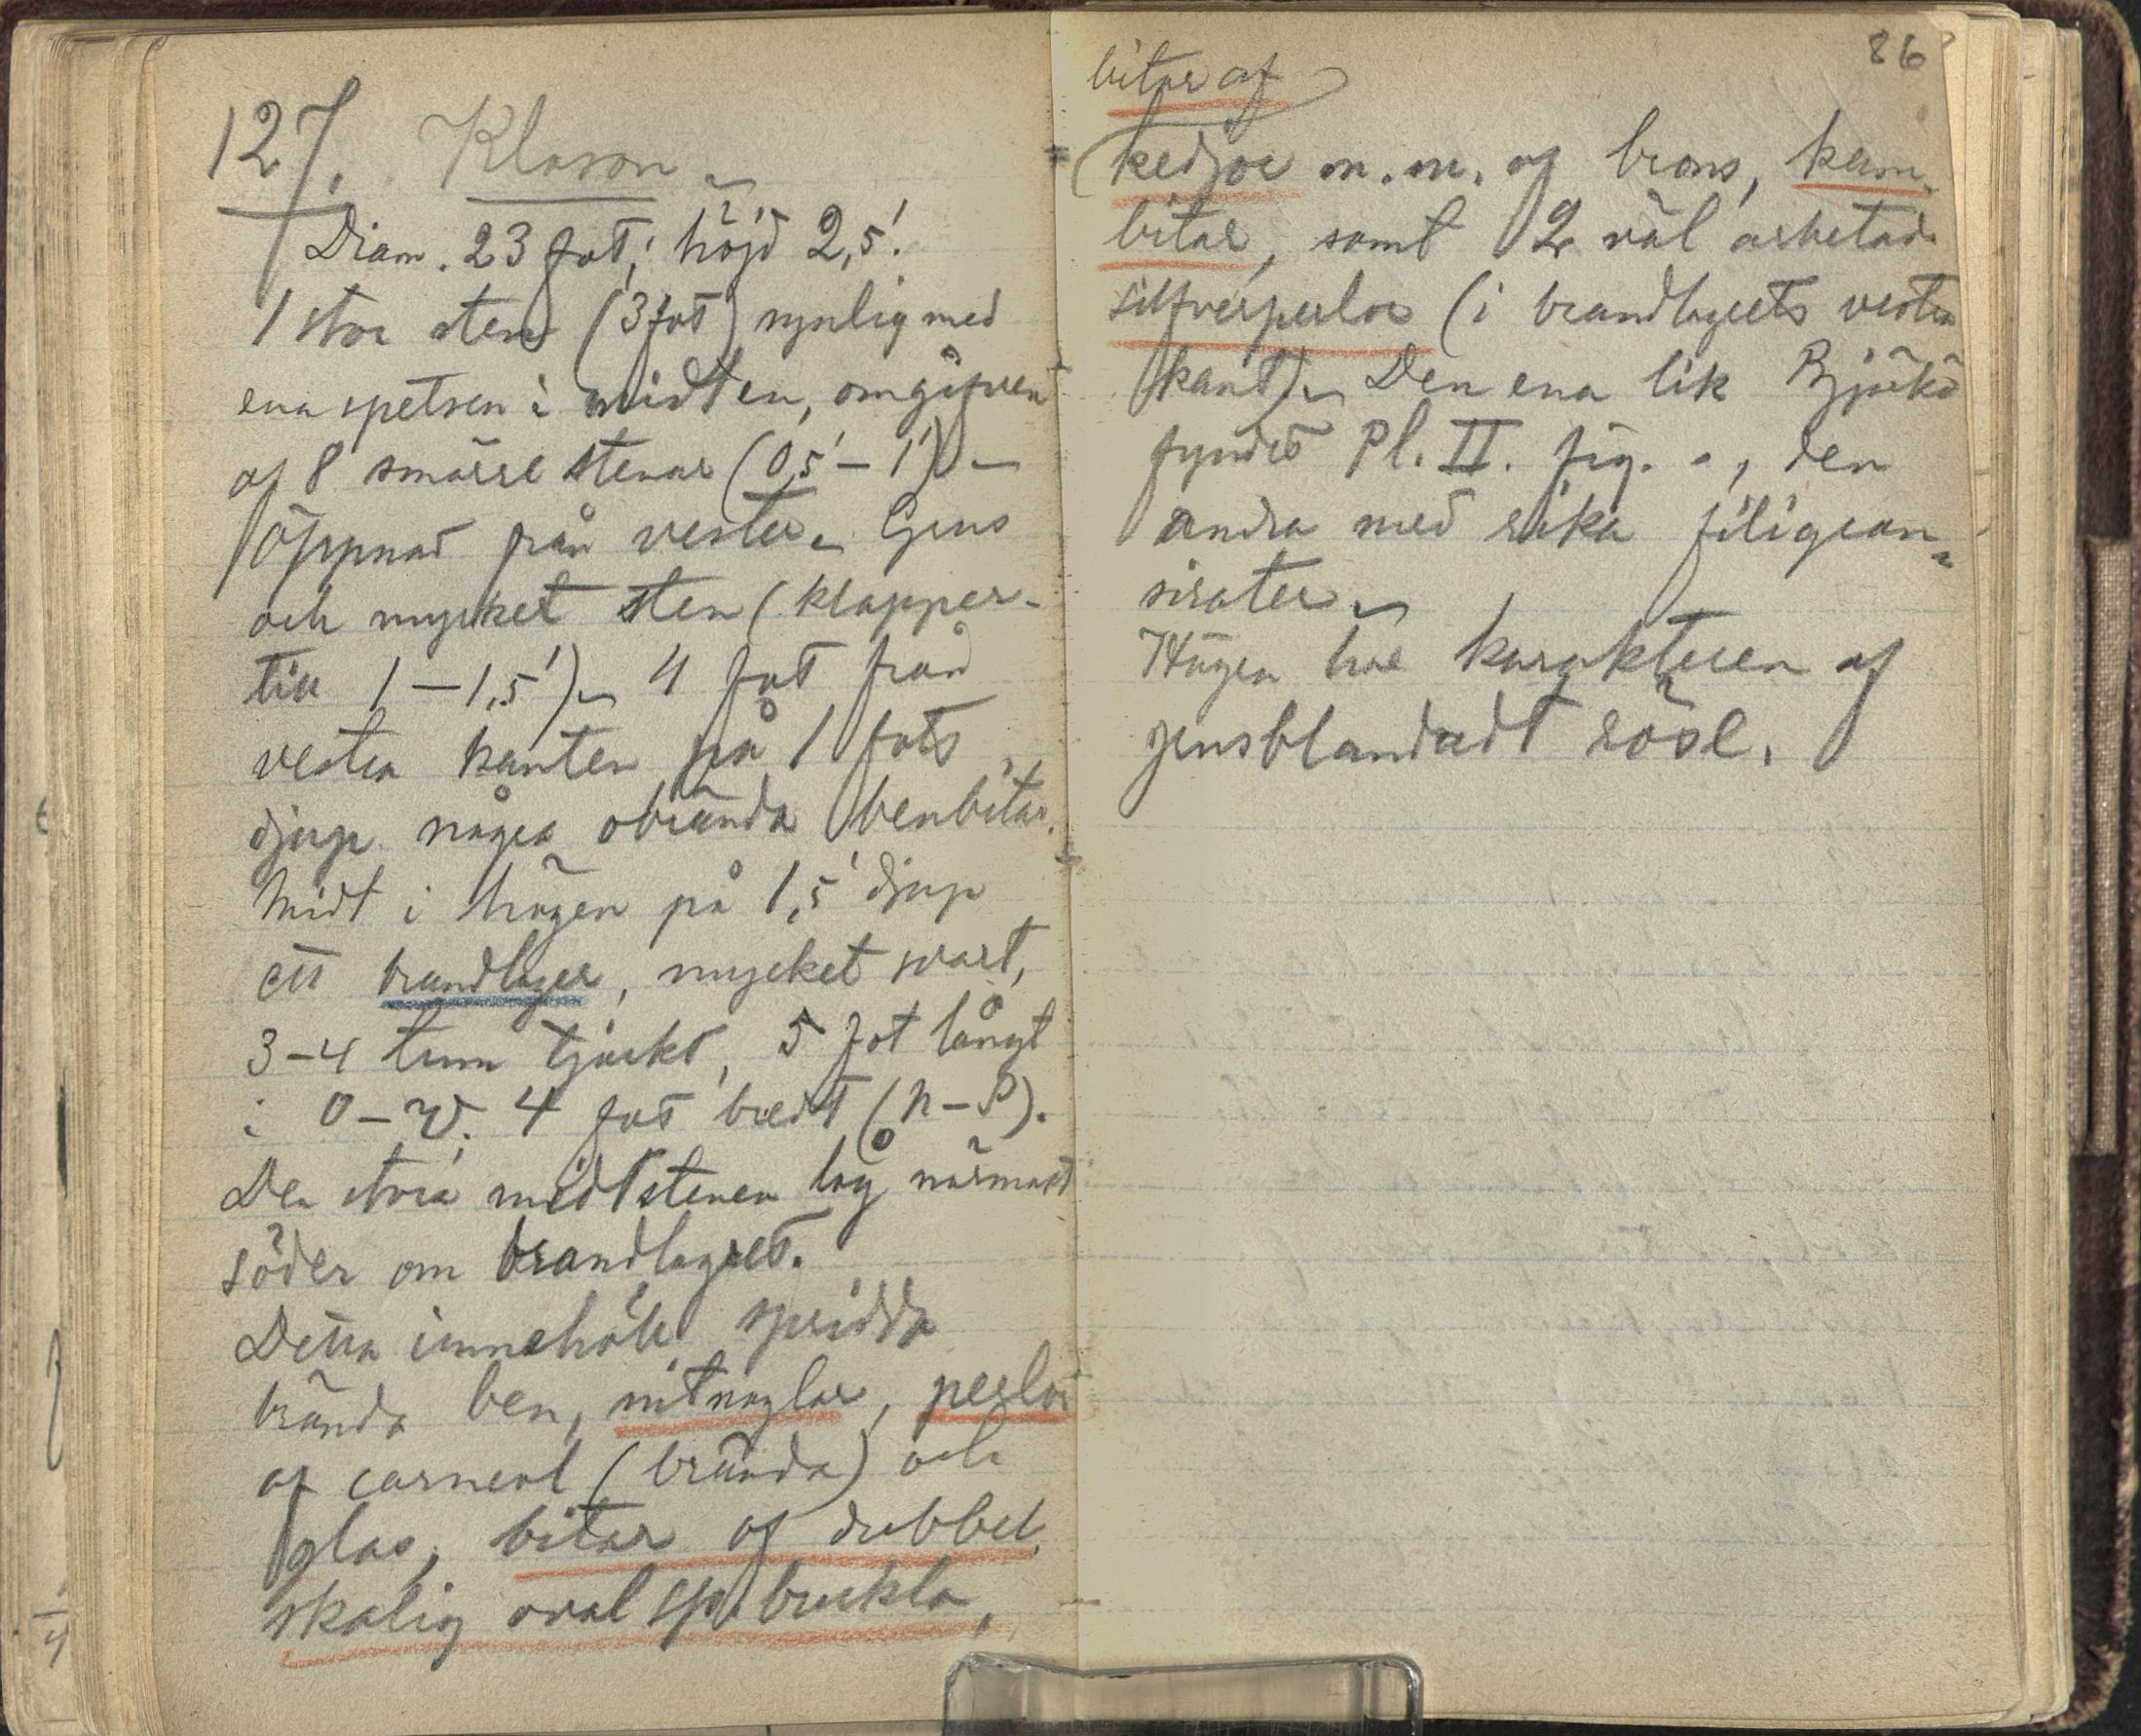 127. Klason ~
Diam. 23 fot; höjd 2,5'.
1 stor sten (3 fot) synlig med
ena spetsen i midten, omgifven
af 8 smärre stenar (0,5' – 1') ~
Öppnad från vester ~ Grus
och mycket sten (klapper-
till 1 – 1,5') ~ 4 fot från
vestra kanten på 1 fots
djup några obrända benbitar.
Midt i högen på 1,5' djup
ett brandlager, mycket svart,
3–4 tum tjockt, 5 fot långt
i O – V. 4 fot bredt (N – S).
Den stora midtstenen låg närmast
söder om brandlagret.
Detta innehöll spridda
brända ben, nitnaglar, perlor
af carneol (brända) och
glas, bitar af dubbel-
skalig oval sp. buckla,
86
bitar af
kedjor m.m. af brons, kam-
bitar, samt 2 väl arbetade
silfverperlor (i brandlagrets vestra
kant) ~ Den ena lik Björkö
fyndet Pl. II. fig. , den
andra med rika filigran-
sirater ~
Högen har karakteren af
grusblandadt röse.